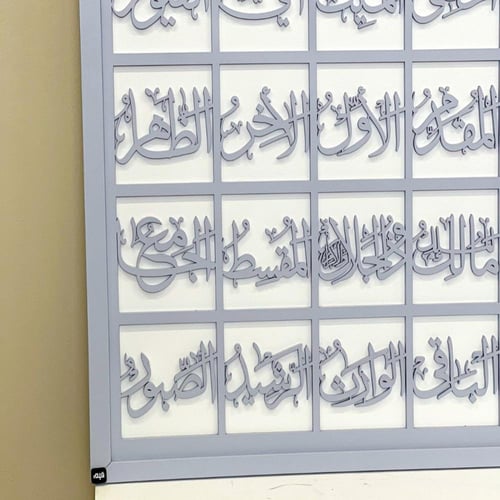 المقدم الأول الآخر الظاهر
مالك الملك ذو الجلال والإكرام المقسط الجامع
الباقي الوارث الرشيد الصبور